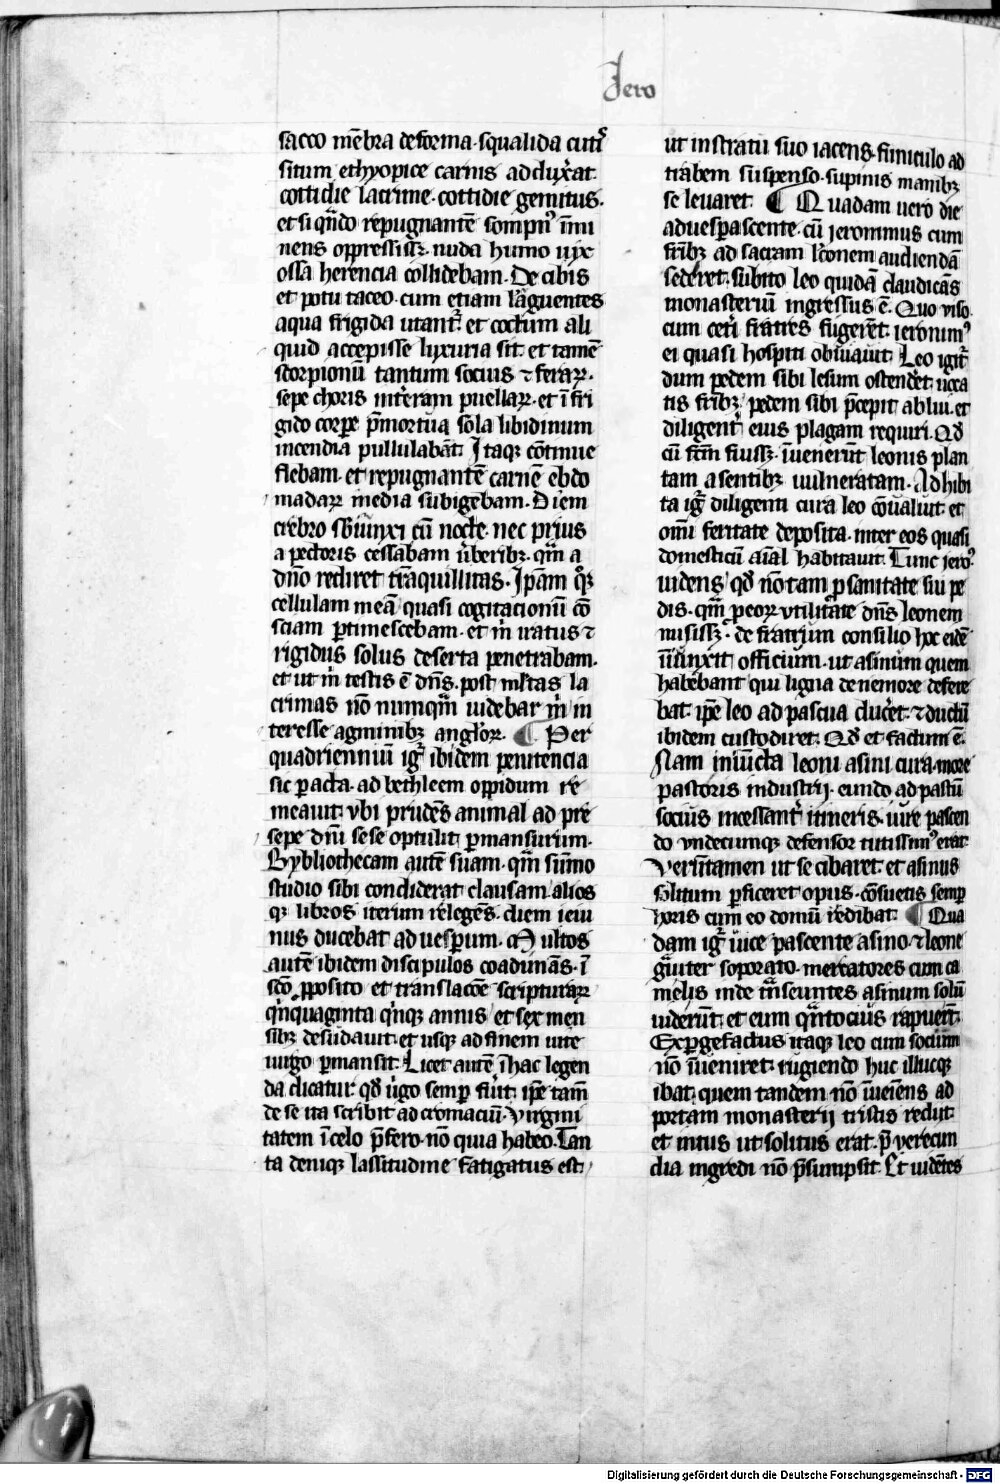 Jero
sacco mēbra deforma. squalida cutꝭ
situm ethyopice carnis adduxͬat
cottidie lacrime. cottidie gemitus.
et si qn̄do repugnantē sompn᷒ īmi
nens oppressissꝫ. nuda humo uix
ossa herencia collidebam. De cibis
et potu taceo. cum etiam lāguentes
aqua frigida utant᷑. et coctum ali
quid accepisse luxuria sit. et tamē
scorpionū tantum socius ⁊ feraꝝ.
sepe choris intͬeram puellaꝝ. et ī fri
gido corpe p̄mortua sola libidinum
incendia pullulabāt. Itaqꝫ cōtinue
flebam. et repugnantē carnē ebdo
madaꝝ media subigebam. Diem
crebro ↄiūnxi cū nocte. nec prius
a pectoris cessabam ūberibꝫ. qm̄ a
dn̄o rediret trāquillitas. Ipām qͦꝫ
cellulam meā quasi cogitacionū cō
sciam ꝑtimescebam. et m̍ iratus ⁊
rigidus solus deserta penetrabam.
et ut m̍ testis ē dn̄s. post ml̓tas la
crimas nō numqm̄ uidebar m̍ in
teresse agminibꝫ angl̓oꝝ. ¶ Per
quadriennium igͬ ibidem penitencia
sic ꝑacta. ad bethleem oppidum re
meauit. vbi prudēs animal ad pre
sepe dn̄i sese optulit ꝑmansurum.
Bybliothecam autē suam. qm̄ sūmo
studio sibi condiderat clausam. alios
qꝫ libros iterum relegēs. diem ieiu
nus ducebat ad uesꝑum. Multos
autē ibidem discipulos coadunās. ī
sc̄o ꝓposito et translacōe scripturaꝝ
qͥnquaginta qͥnqꝫ annis et sex men
sibꝫ desudauit. et usqꝫ ad finem uite
uirgo ꝑmansit. Licet autē ī hac legen
da dicatur. qd̄ ūgo semꝑ fūit. ip̄e tam̄
de se ita scribit ad cromaciū. Virgini
tatem ī celo p̄fero. nō quia habeo. Tan
ta deniqꝫ lassitudine fatigatus est.
ut in stratu suo iacens. funiculo ad
trabem suspenso. supinis manibꝫ
se leuaret. ¶ Quadam uero die
aduesꝑascente. cū jeronimus cum
fr̄ibꝫ ad sacram lc̄onem audiendā
sederet. subito leo quidā claudicās
monasteriū ingressus ē. Quo viso
cum cet̄i fratres fugerēt. ieronim᷒
ei quasi hospiti obuiauit. Leo igit᷑
dum pedem sibi lesum ostendet. uoca
tis fr̄ibꝫ pedem sibi p̄cepit ablui. et
diligent᷑ eius plagam requiri. Qd̄
cū fc̄m fuissꝫ. īuenerūt leonis plan
tam a sentibꝫ uulneratam. Adhibi
ta igͬ diligenti cura leo cōualuit. et
om̄i feritate deposita. inter eos quasi
domesticū aīal habitauit. Tunc jero᷒
uidens qd̄ nō tam ꝓ sanitate sui pe
dis. qm̄ ꝓ eoꝝ vtilitate dn̄s leonem
misissꝫ. de fratrum consilio hoc eidē
iniunxit officium. ut asinum quem
habebant qui ligna de nemore defere
bat. ip̄e leo ad pascua ducͬet. ⁊ ductū
ibidem custodiret. Qd̄ et factum ē.
Nam iniūcta leoni asini cura. more
pastoris industrij. eundo ad pastū
socius incessant᷑ itineris. iure pascen
do vndecumqꝫ defensor tutissim᷒ erat.
Veruntamen ut se cibaret. et asinus
solitum ꝑficeret opus. cōsuetis semꝑ
horis cum eo domū redibat. ¶ Qua
dam igͬ uice pascente asino. ⁊ leone
gͣuiter soporato. mercatores cum ca
melis inde trāseuntes asinum solū
uiderūt. et eum qͣntocius rapuerūt.
Expergefactus itaqꝫ leo cum socium
nō īueniret. rugiendo huc illucqꝫ
ibat. quem tandem nō īueniens ad
portam monasterij tristis rediit.
et intus ut solitus erat. p̄ verecun
dia ingredi nō p̄sumpsit. Et uidētes
Digitalisierung gefördert durch die Deutsche Forschungsgemeinschaft - DFG